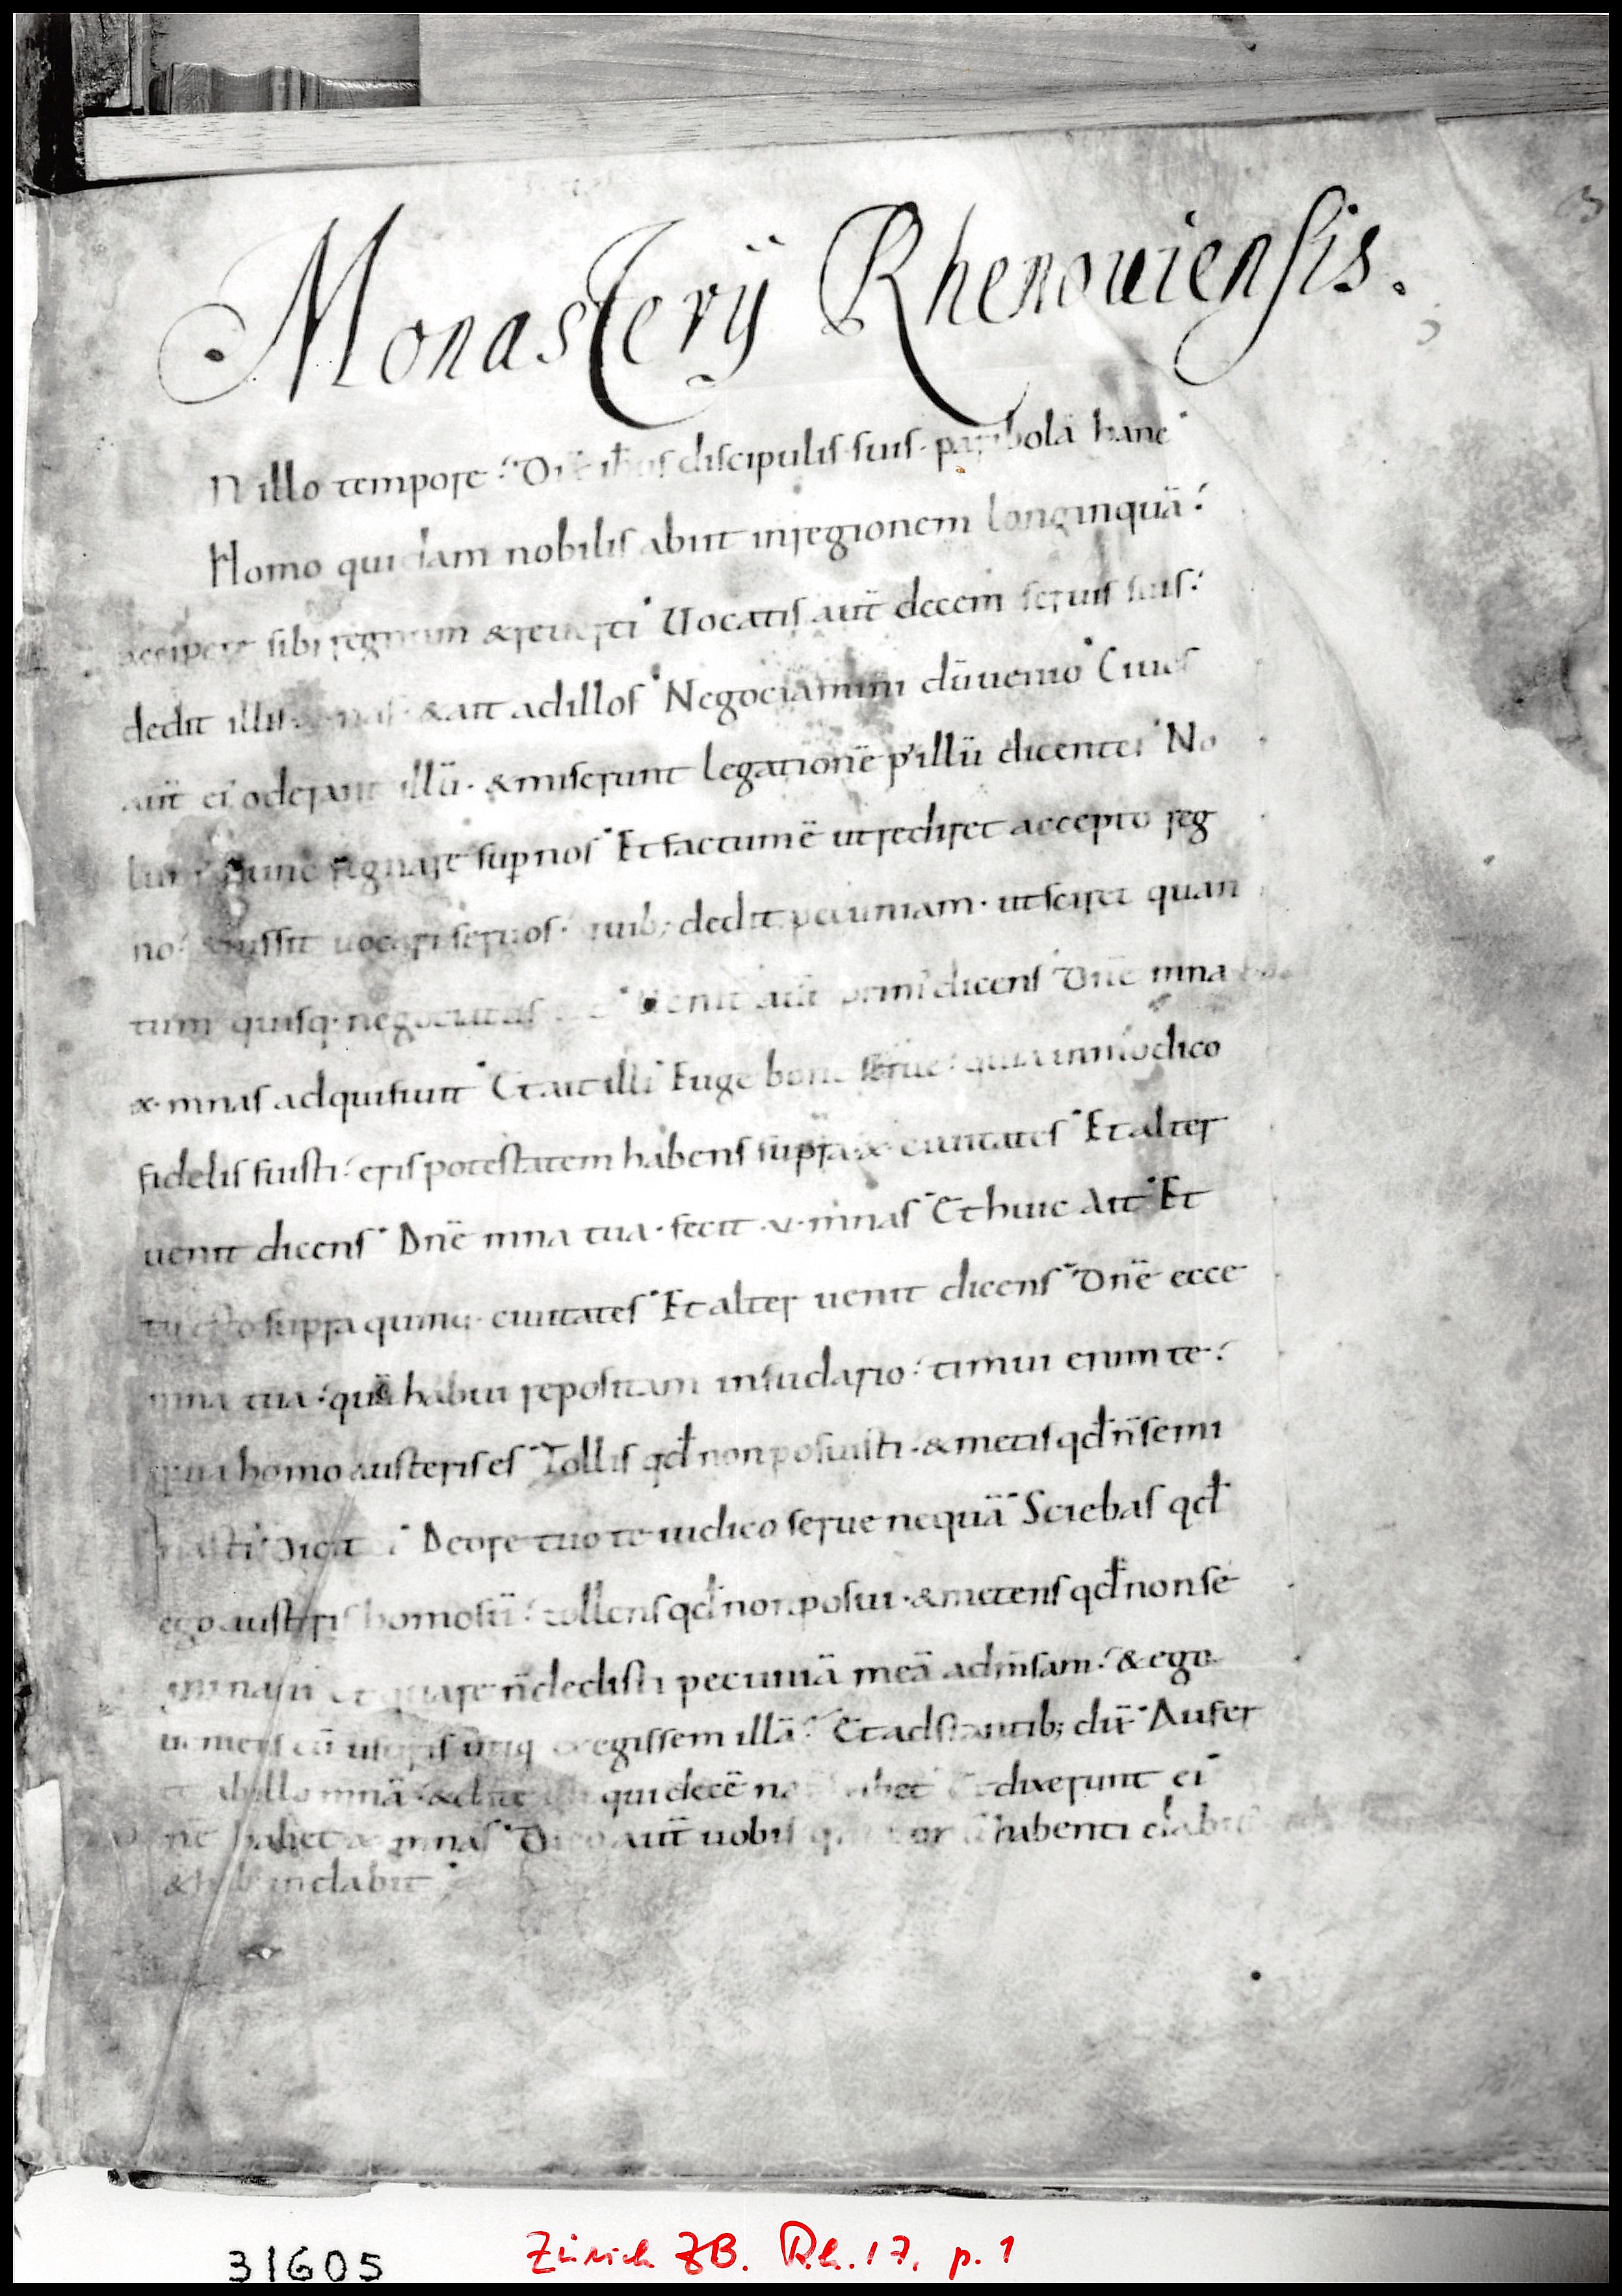 Monasterij Rhenouiensis.
N illo tempore: Dix̄ ih̄s discipulis suis. parabolā hanc
Homo quidam nobilis abiit inregionem longinquā:
accipere sibi regnum &reuerti Uocatis aūt decem seruis suis:
dedit illis mnas. &ait adillos Negociamini dūuenio Ciues
aūt ei oderant illū. &miserunt legationē p̄illū dicentes No
lum hunc regnare sup nos Et factum ē ut rediret accepto reg
no. &iussit uocari seruos. quib; dedit pecuniam. utsciret quan
tum quisq. negociatus Uenit aūt prim' dicens Dnē mna
x. mnas adquisiuit Et ait illi Euge bone serue. quia inmodico
fidelis fuisti. eris potestatem habens supra x. ciuitates Et alter
uenit dicens Dnē mna tua. fecit .v. mnas Et huic Ait Et
tu esto supra quinq. ciuitates Et alter uenit dicens Dnē ecce
mna tua. quā habui repositam insudario. timui enim te.
quia homo austeris es Tollis qd̄ non posuisti. &metis qd̄ n̄ semi
nasti Dicit ei Deore tuo te iudico serue nequā Sciebas qd̄
ego austeris homo sū. tollens qd̄ non posui. &metens qd̄ non se
minaui Et quare n̄ dedisti pecuniā meā admsam. & ego
ueniens cū usuris utiq exegissem illā. Et adstantib; dix̄ Aufer
te abillo mnā. &date illi qui decē habet Et dixerunt ei
Dnē habet x. mnas Dico aūt uobis habenti dabit
&hab indabit
31605
Zürich ZB. Rh. 17. p. 1